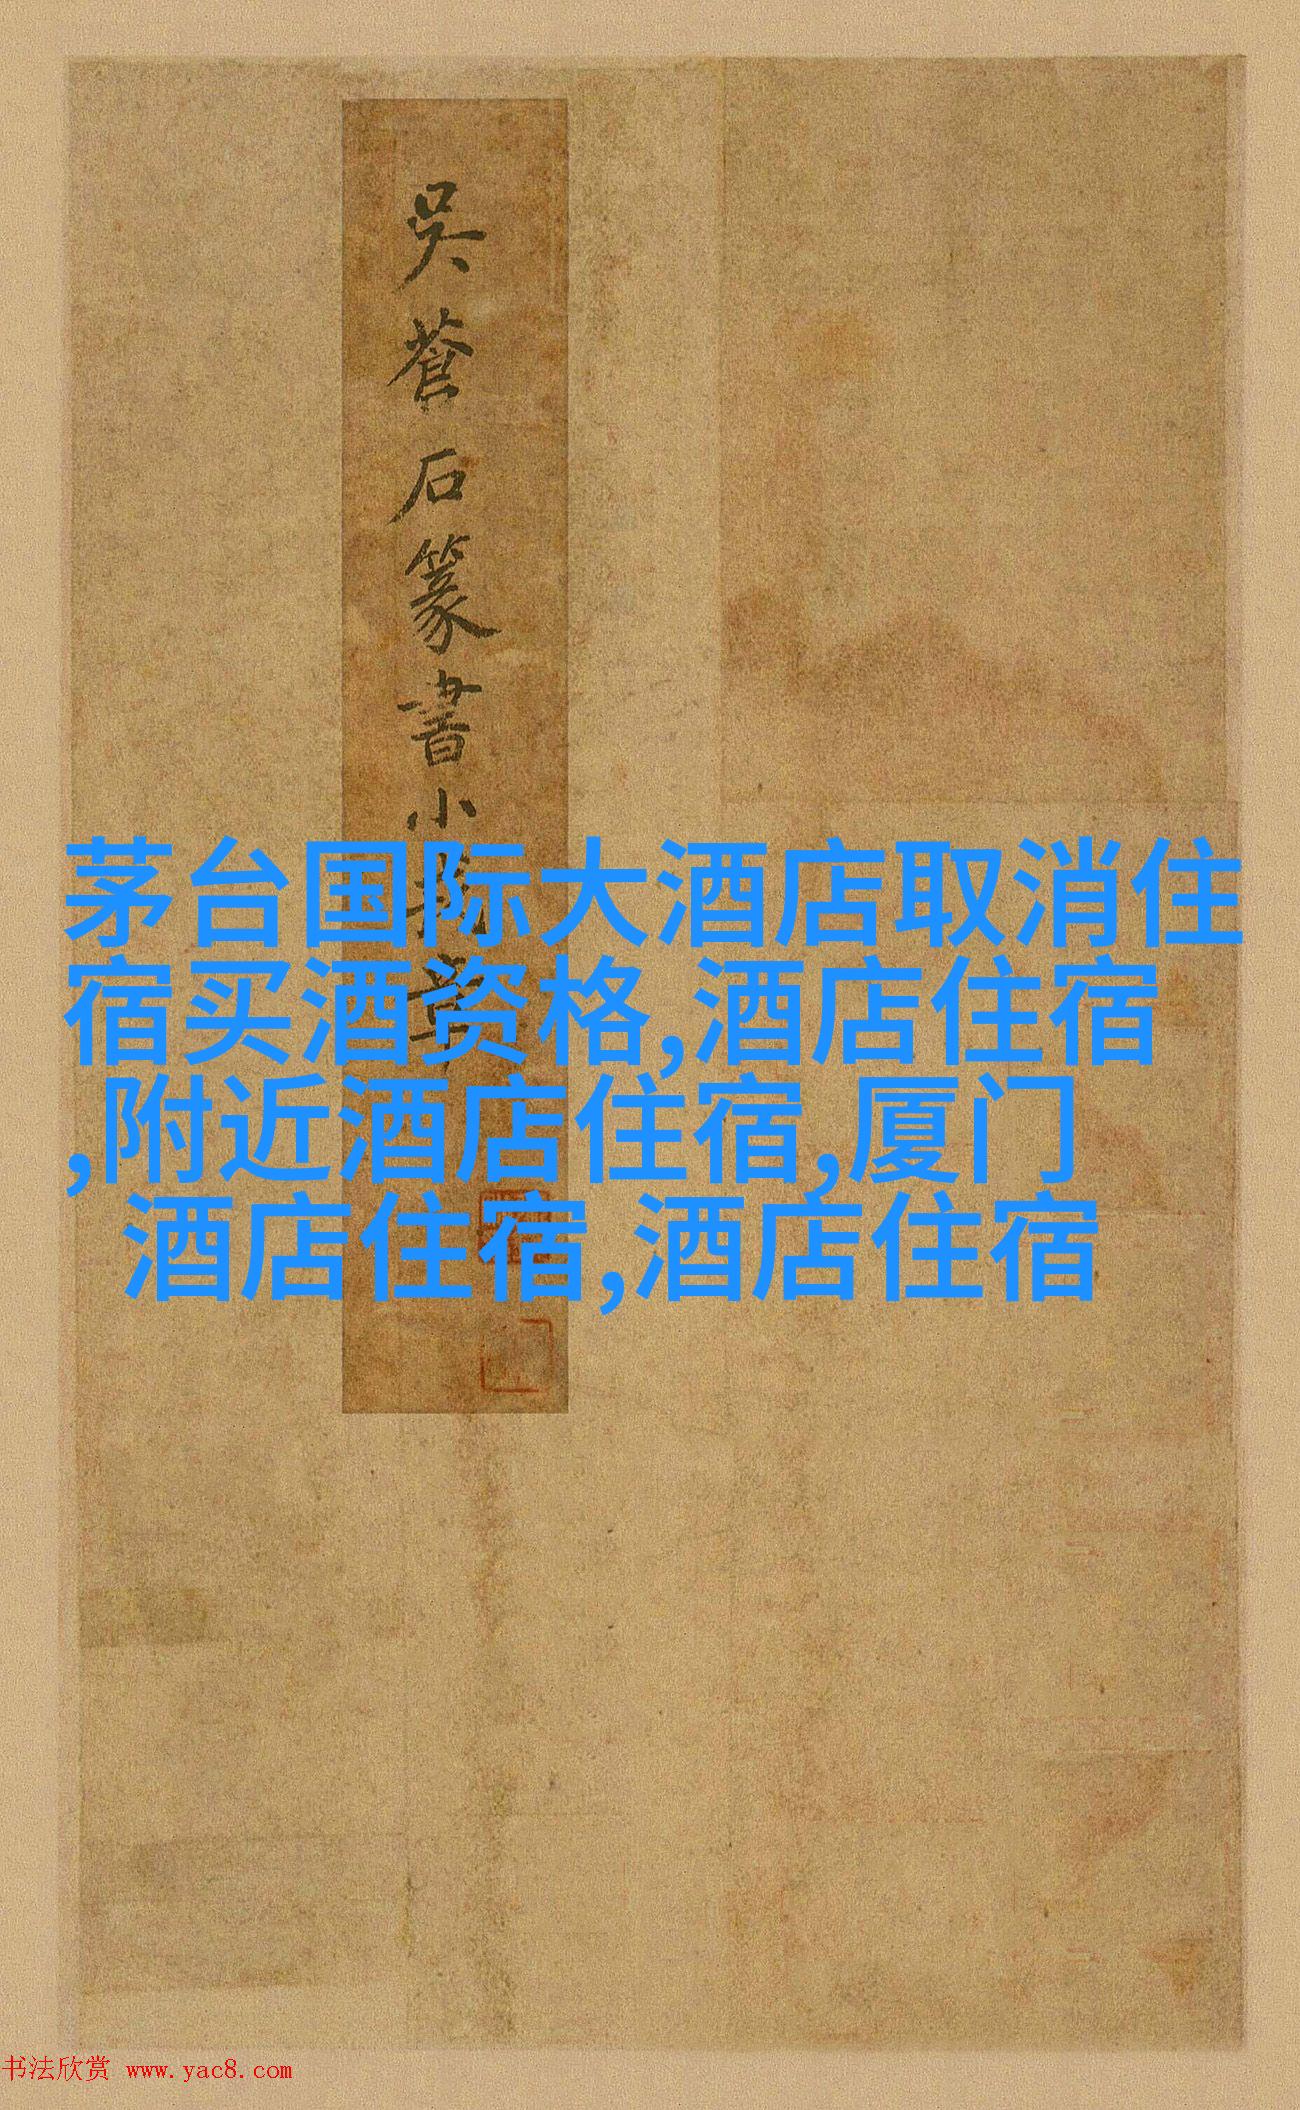 吳蒼石篆書小
茅台国际大酒店取消住
宿买酒资格,酒店住宿
,附近酒店住宿,厦门
酒店住宿,酒店住宿
书法欣赏 www.yac8.com